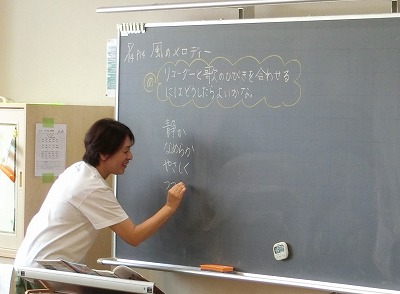 風のメロディー
め リコーダーと歌のひびきを合わせる
にはどうしたらよいかな。
静か
なめらか
やさしく